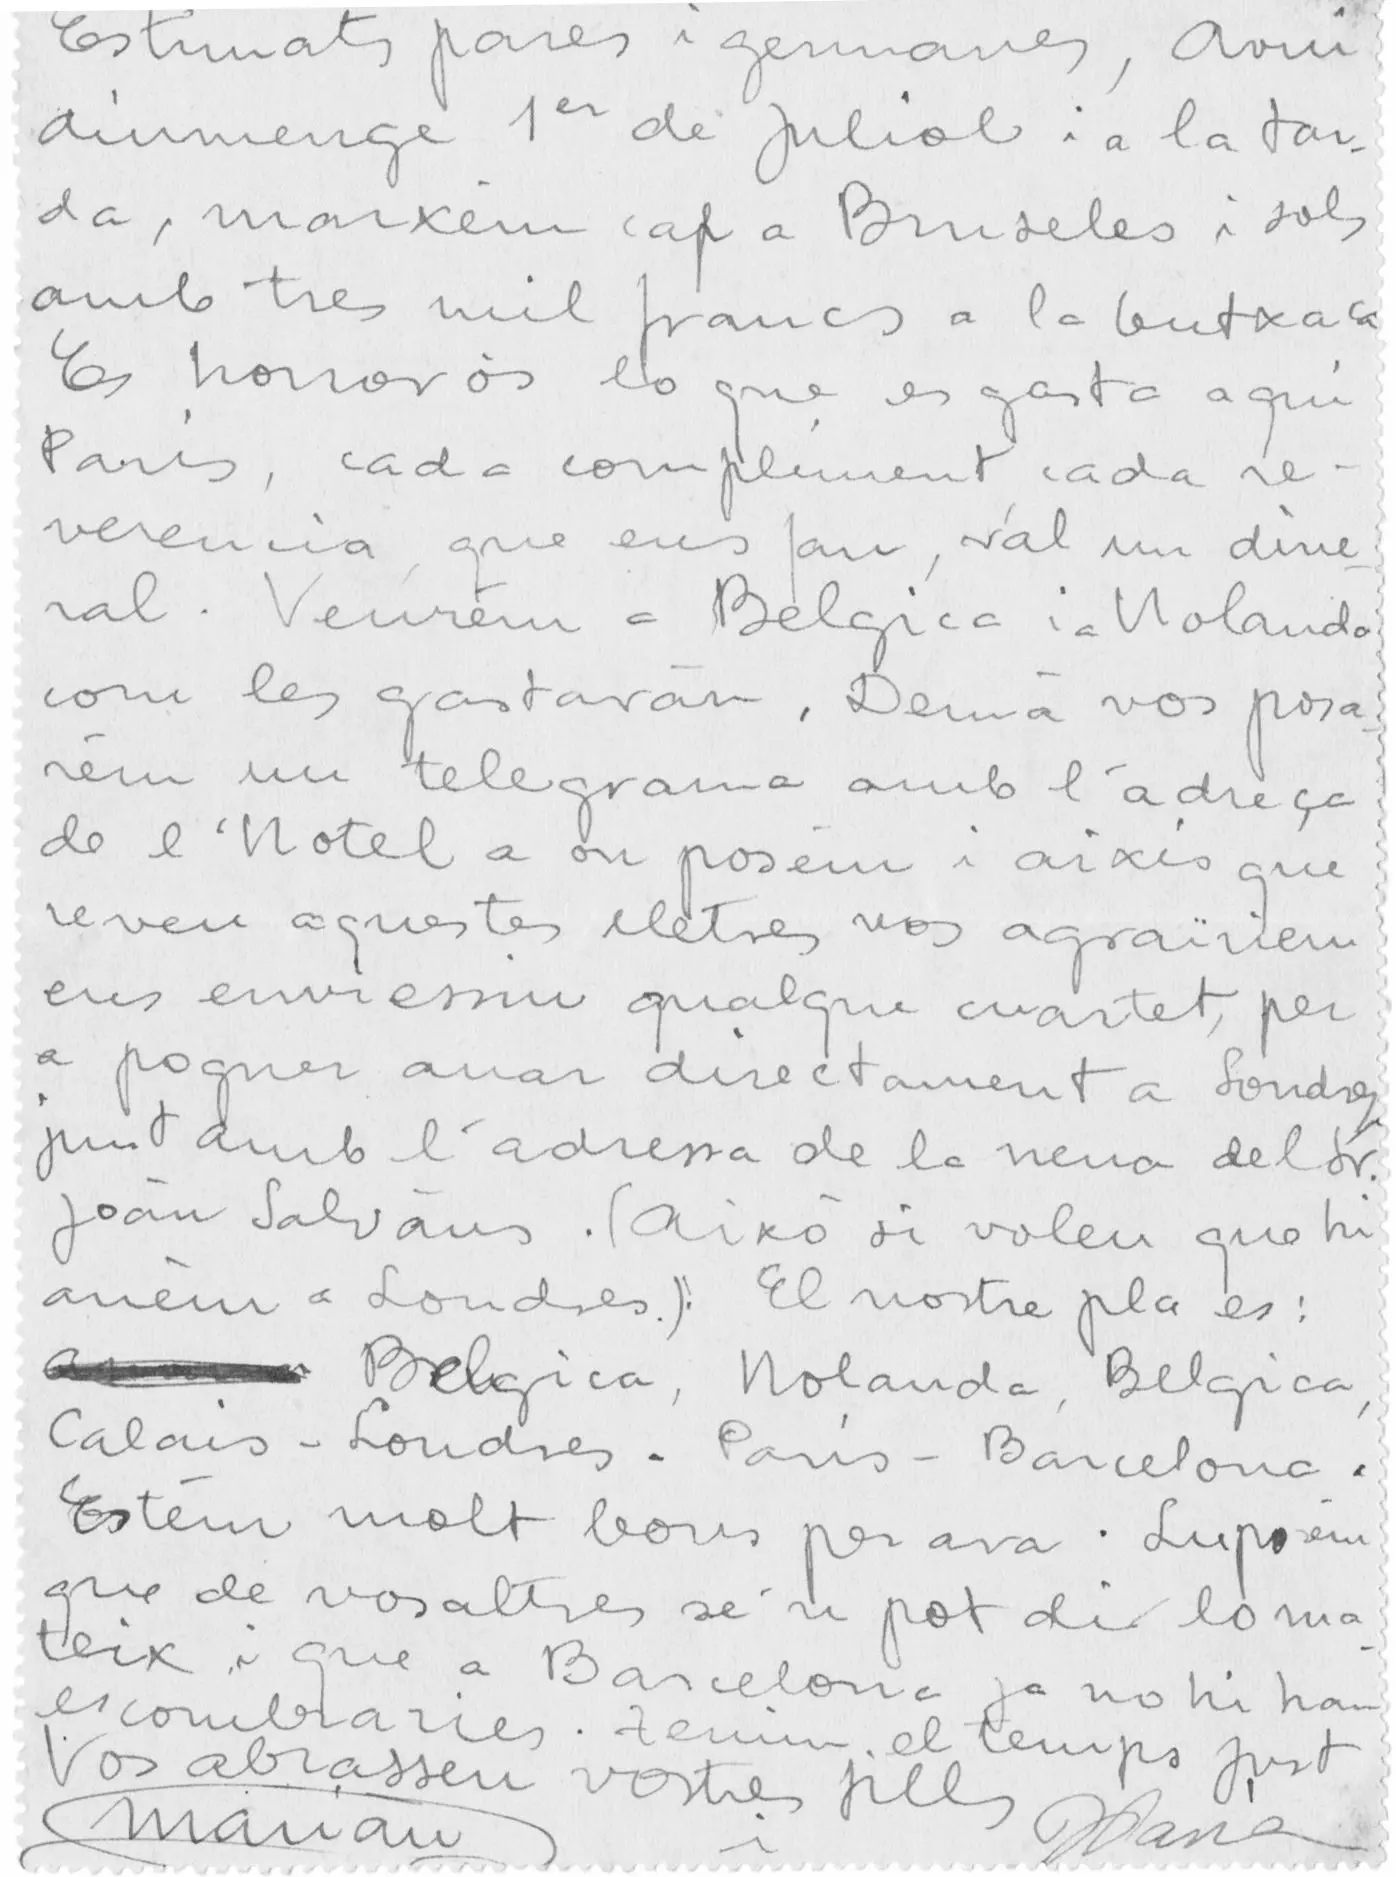 Estimats pares i germanes, Avui
diumenge 1er de Juliol i a la tar-
da, marxèm cap a Bruseles i sols
amb tres mil francs a la butxaca
Es horrorós lo que es gasta aquí
París, cada complíment, cada re-
verencia, que ens fan, val un dine-
ral. Veurèm a Bèlgica i a Holanda
com les gastaràn. Demà vos posa-
rèm un telegrama amb l'adreça
de l'Hotel a on posèm i aixís que
reveu aquestes lletres vos agraïriem
ens enviessiu qualque cuartet, per
a poguer anar directament a Londres
junt amb l'adressa de la nena del Sr.
Joàn Salvàns. (Aixó si voleu que hi
anèm a Londres.): El nostre pla es:
Belgica, Holanda, Belgica,
Calais - Londres - París - Barcelona.
Estèm molt bons per ara. Suposèm
que de vosaltres se'n pot dir lo ma-
teix i que a Barcelona ja no hi han
escombraries. Tenim el temps just
Vos abrassen vostres fills
Marian i Maria